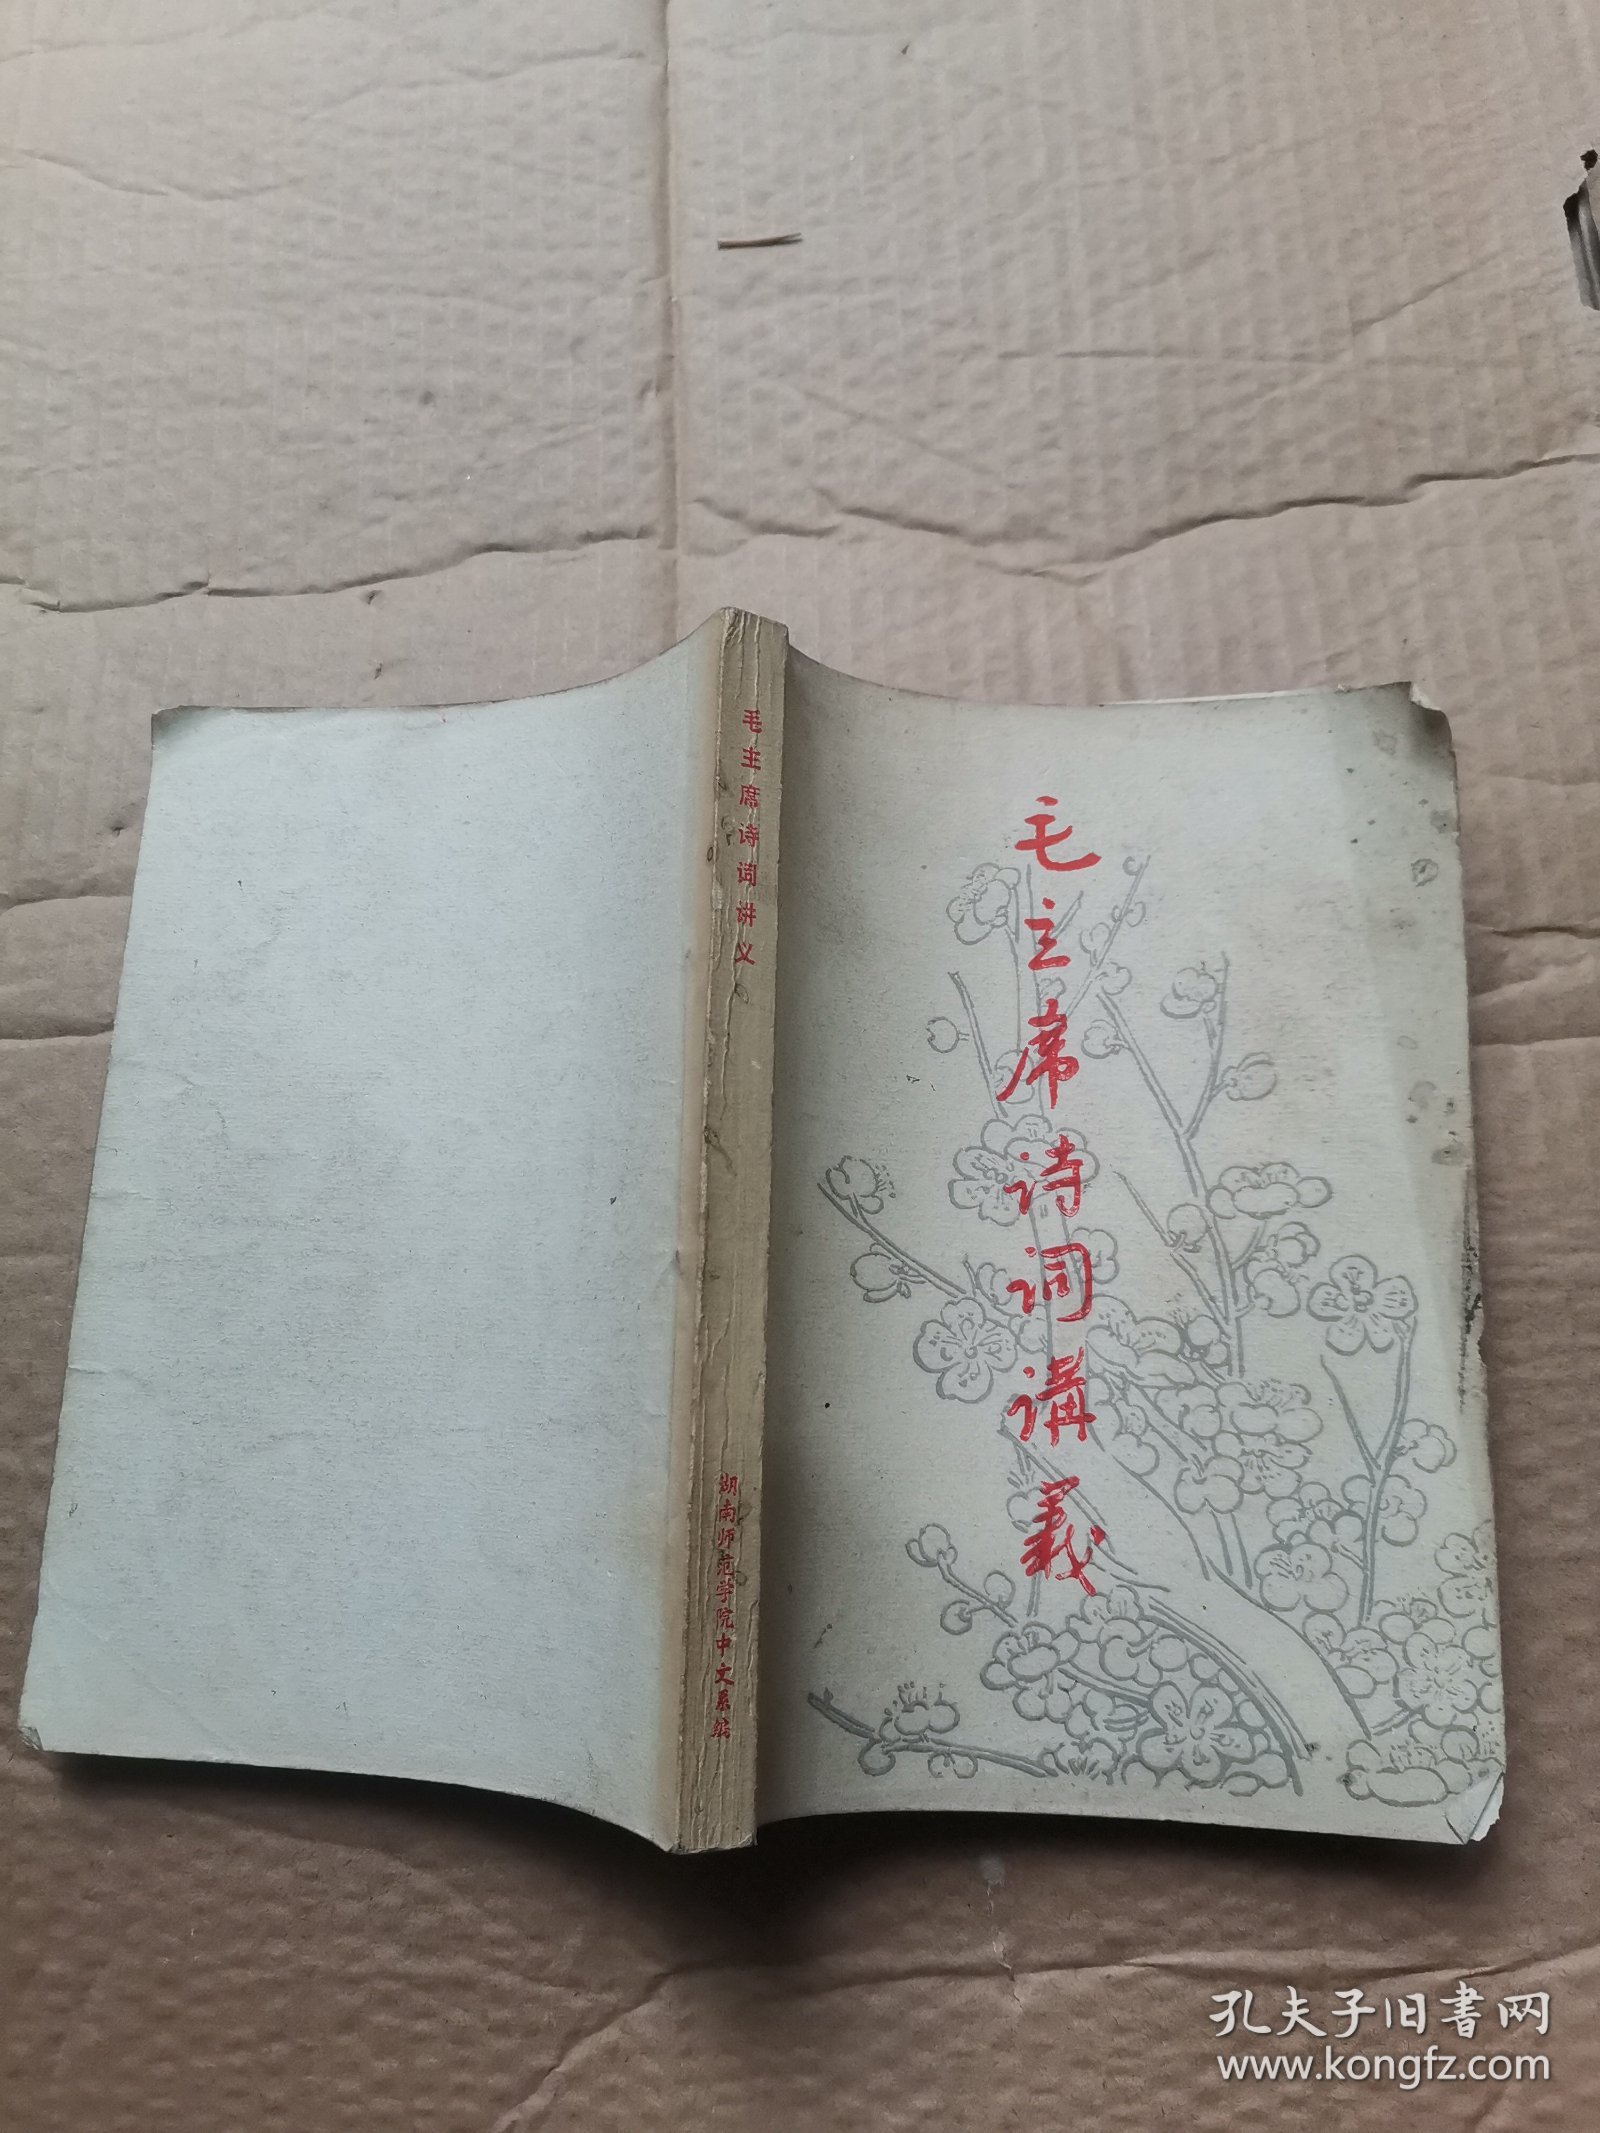 毛主席诗词讲义
湖南师范学院中文系编
毛主席诗词講義
孔夫子旧書网
www.kongfz.com